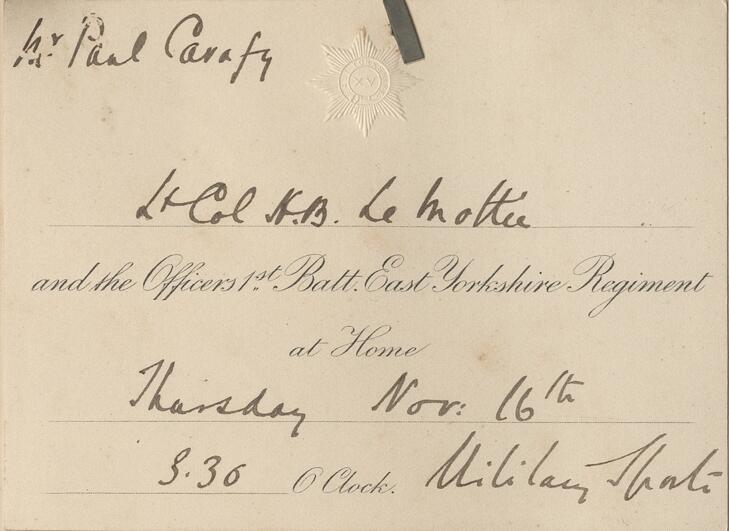 Mr Paul Cavafy
XV
Lt Col H.B. Le Mottée
and the Officers 1st Batt. East Yorkshire Regiment
at Home
Thursday Nov: 16th
3.30 O'Clock. Military Sports